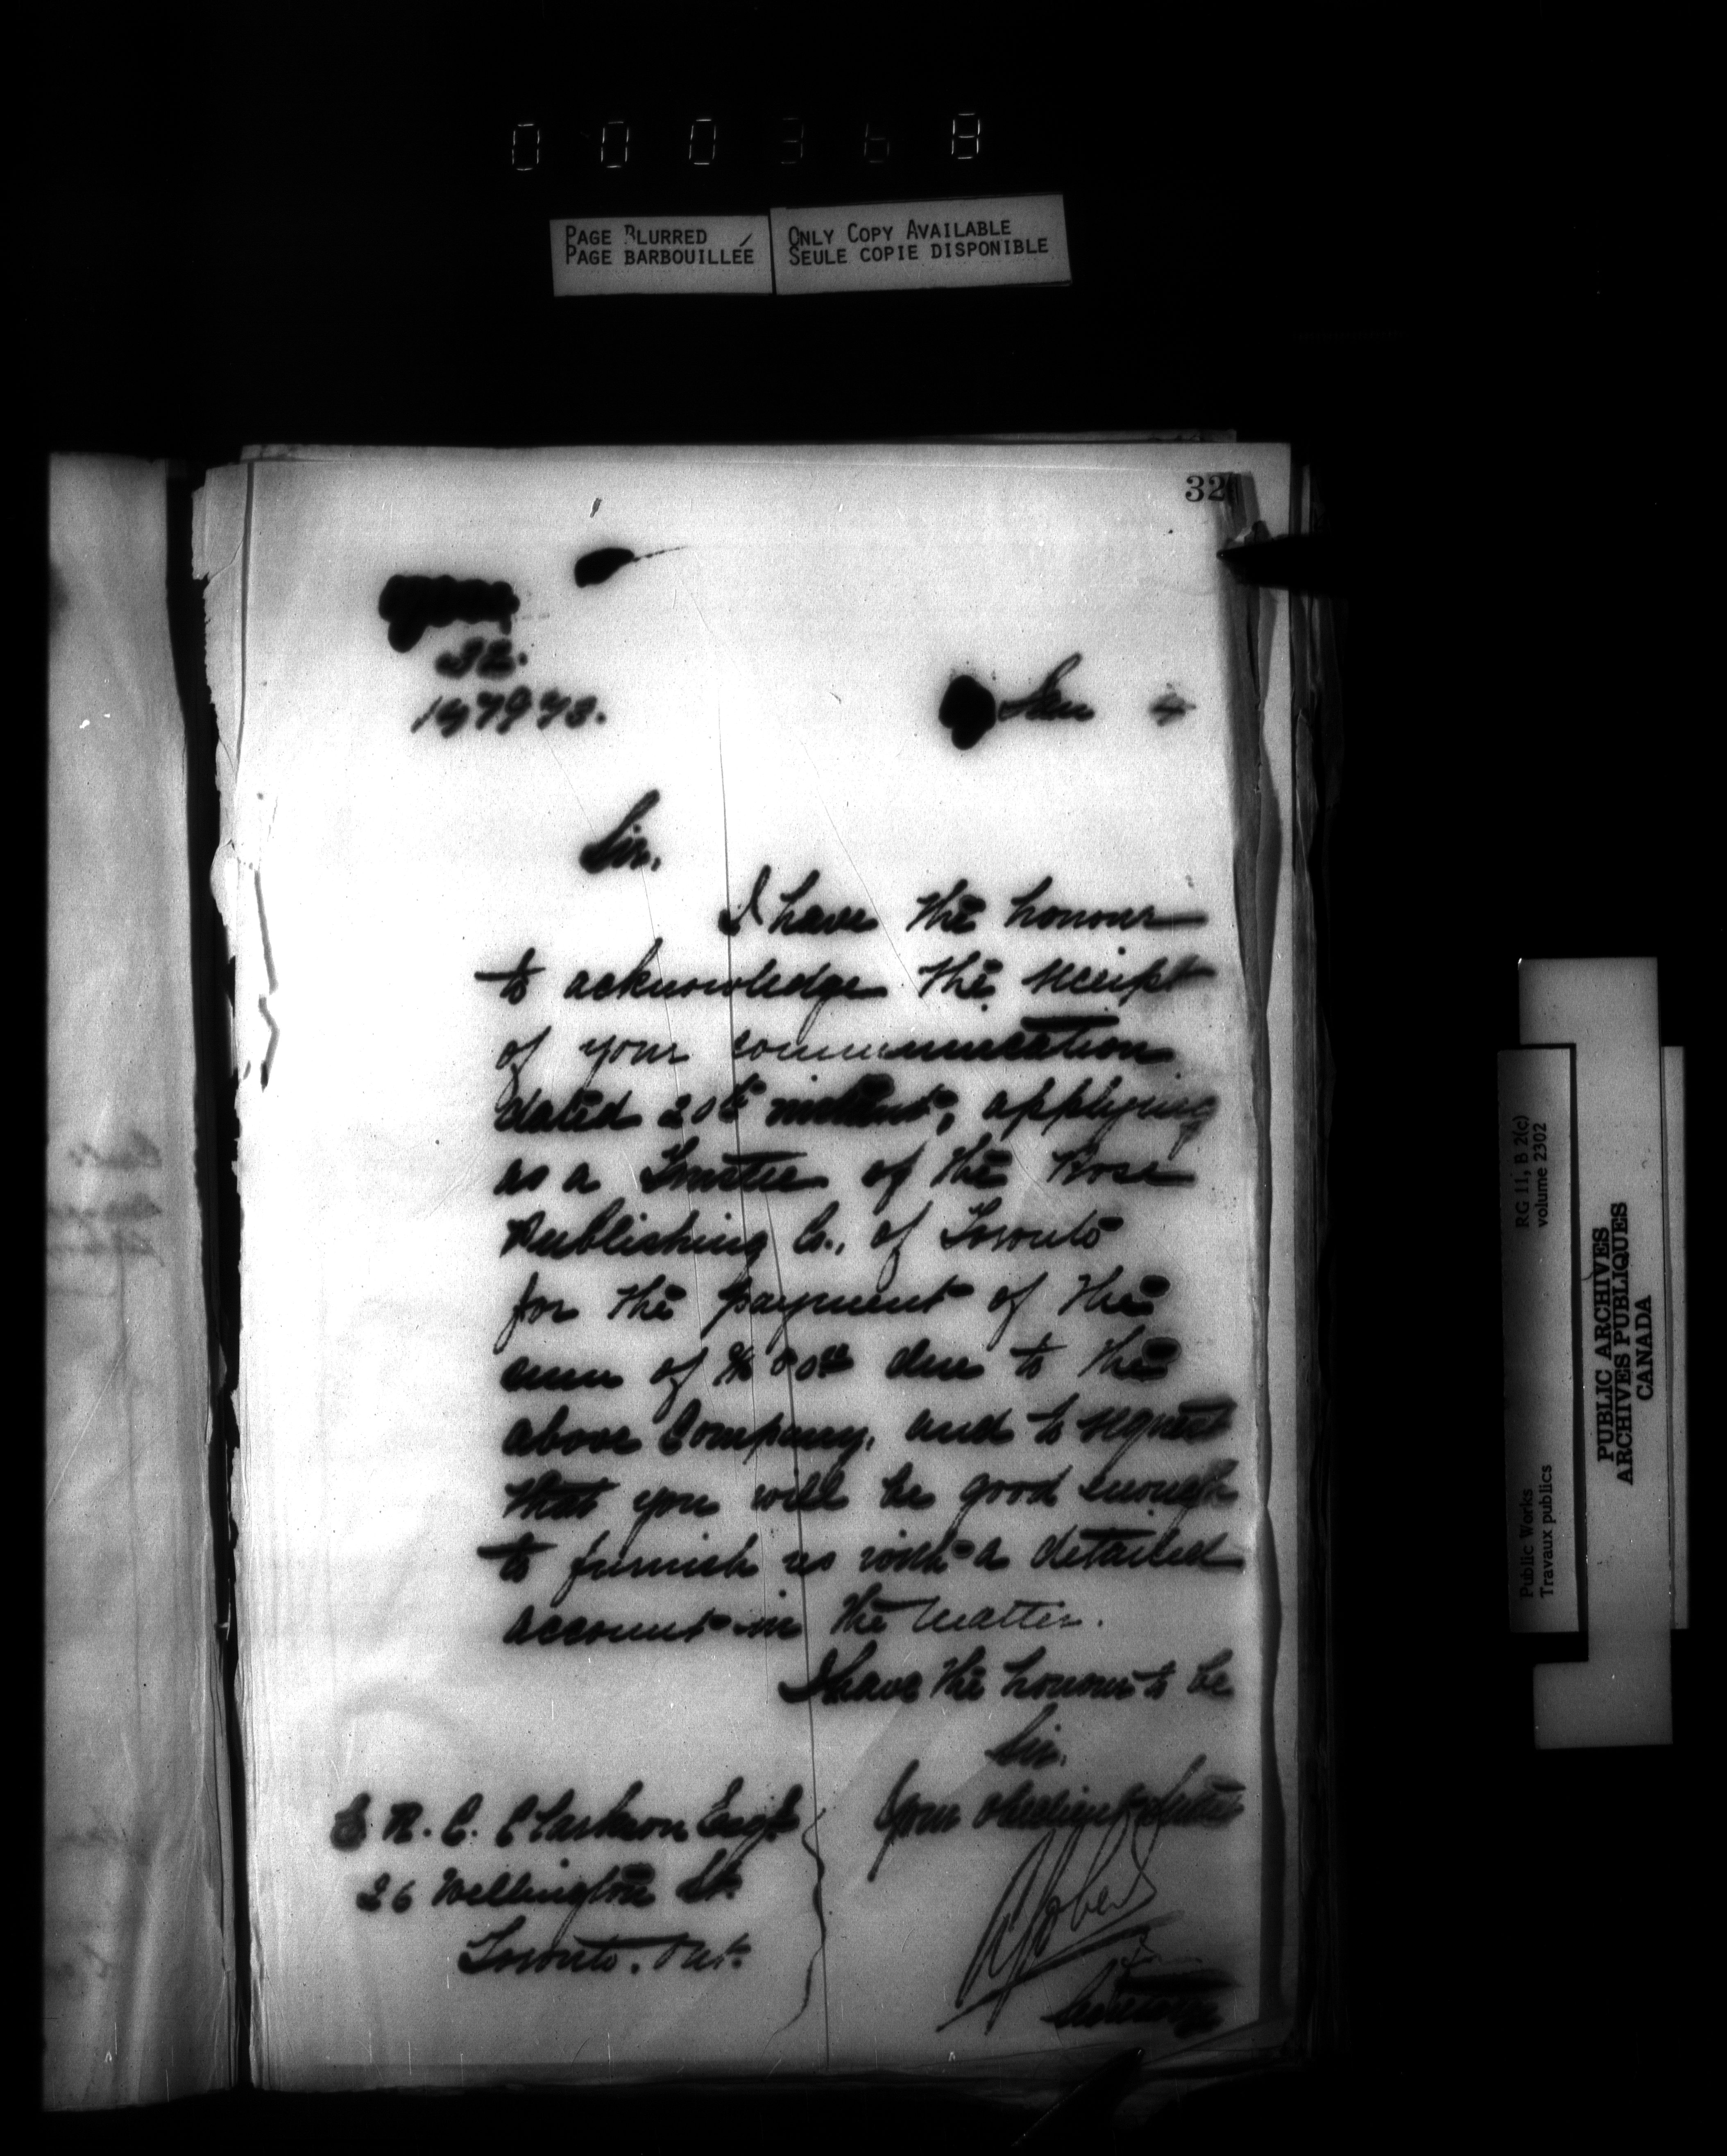 000368
PAGE BLURRED
PAGE BARBOUILLÉE
ONLY COPY AVAILABLE
SEULE COPIE DISPONIBLE
32
32.
Jan 4
Sir,
I have the honour
to acknowledge the receipt
of your communication
dated 20th instant, applying
as a Trustee of the Rose
Publishing Co., of Toronto
for the payment of the
sum of due to the
above Company, and to request
that you will be good enough
to furnish us with a detailed
account in the matter.
I have the honour to be
Sir,
Your obedient
E. R. C. Clarkson Esq.
26 Wellington St.
Toronto. Ont.
Secretary
RG 11, B 2(c)
volume 2302
Public Works
Travaux publics
PUBLIC ARCHIVES
ARCHIVES PUBLIQUES
CANADA